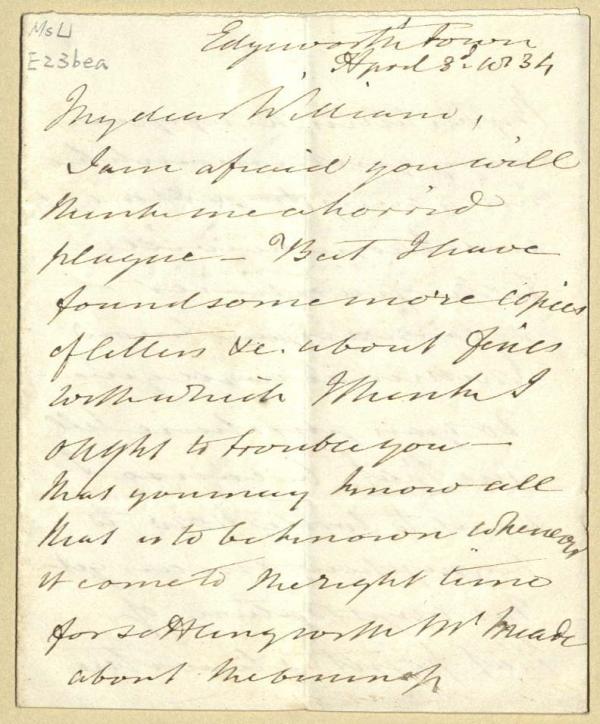 MsL
E23bea
Edgeworth's town
April 3d. 1834
My dear William,
I am afraid you will
think me a horrid
plague — But I have
found some more copies
of letters &c. about fines
with which I think I
ought to trouble you —
that you may know all
that is to be known whenever
it come to the right time
for settling with Mr. Meade
about the business